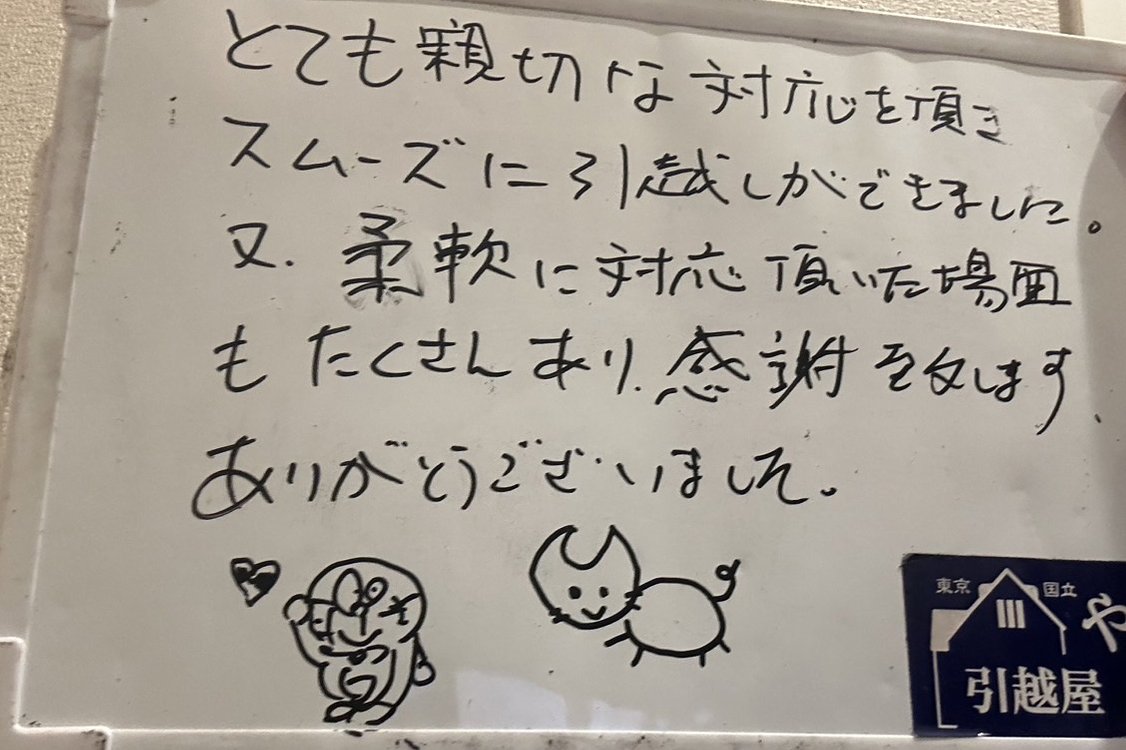 とても親切な対応を頂き
スムーズに引越しができました。
又、柔軟に対応頂いた場面
もたくさんあり、感謝致します。
ありがとうございました。
東京 国立
や
引越屋